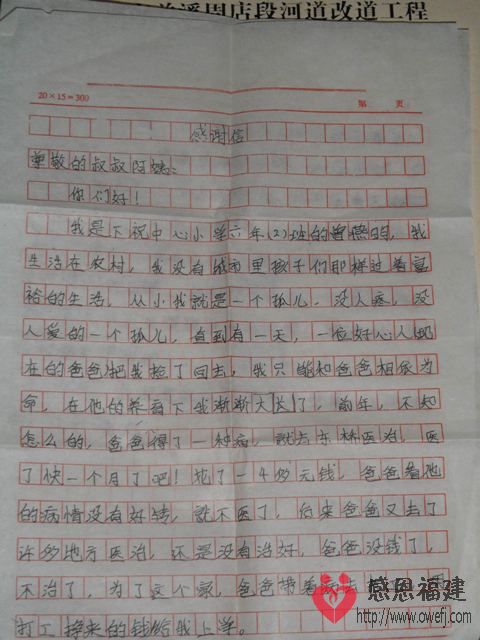 溪周店段河道改道工程
20×15=300
第 页
感谢信
尊敬的叔叔阿姨:
你们好!
我是下祝中心小学六年(2)班的曾 ,我
生活在农村,我没有城市里孩子们那样过着富
裕的生活,从小我就是一个孤儿,没人疼,没
人爱的一个孤儿,直到有一天,一位好心人现
在的爸爸把我捡了回去,我只能和爸爸相依为
命,在他的养育下我渐渐大长了,前年,不知
怎么的,爸爸得了一种病,就去 林医治,医
了快一个月了吧!花了一4多元钱,爸爸看他
的病情没有好转,就不医了,后来爸爸又去了
许多地方医治,还是没有治好,爸爸没钱了,
不治了,为了这个家,爸爸带着 去
打工挣来的钱给我上学。
感恩福建
http://www.owefj.com